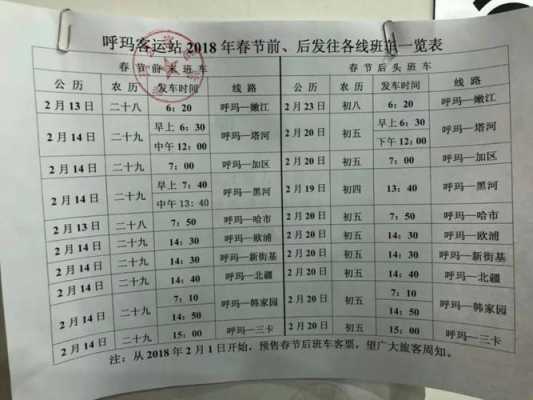 呼玛客运站 2018 年春节前、后发往各线班车一览表
春节前末班车 春节后头班车
公历 农历 发车时间 线路 公历 农历 发车时间 线路
2月13日 二十八 6：20 呼玛—嫩江 2月23日 初八 6：20 呼玛—嫩江
2月14日 二十九 早上 6：30 呼玛—塔河 2月20日 初五 6：30 呼玛—塔河
中午 12：00 下午 12：00
2月14日 二十九 7：00 呼玛—加区 2月20日 初五 7：00 呼玛—加区
2月14日 二十九 早上 7：40 呼玛—黑河 2月19日 初四 13：40 呼玛—黑河
中午 13：40
2月13日 二十八 7：50 呼玛—哈市 2月20日 初五 7：50 呼玛—哈市
2月14日 二十九 14：30 呼玛—欧浦 2月20日 初五 14：30 呼玛—欧浦
2月14日 二十九 14：30 呼玛—新街基 2月20日 初五 14：30 呼玛—新街基
2月14日 二十九 14：40 呼玛—北疆 2月20日 初五 14：40 呼玛—北疆
2月14日 二十九 7：10 呼玛—韩家园 2月20日 初五 7：10 呼玛—韩家园
14：50 14：50
2月14日 二十九 15：00 呼玛—三卡 2月20日 初五 15：00 呼玛—三卡
注：从 2018 年 2 月 1 日开始，预售春节后班车客票，望广大旅客周知。